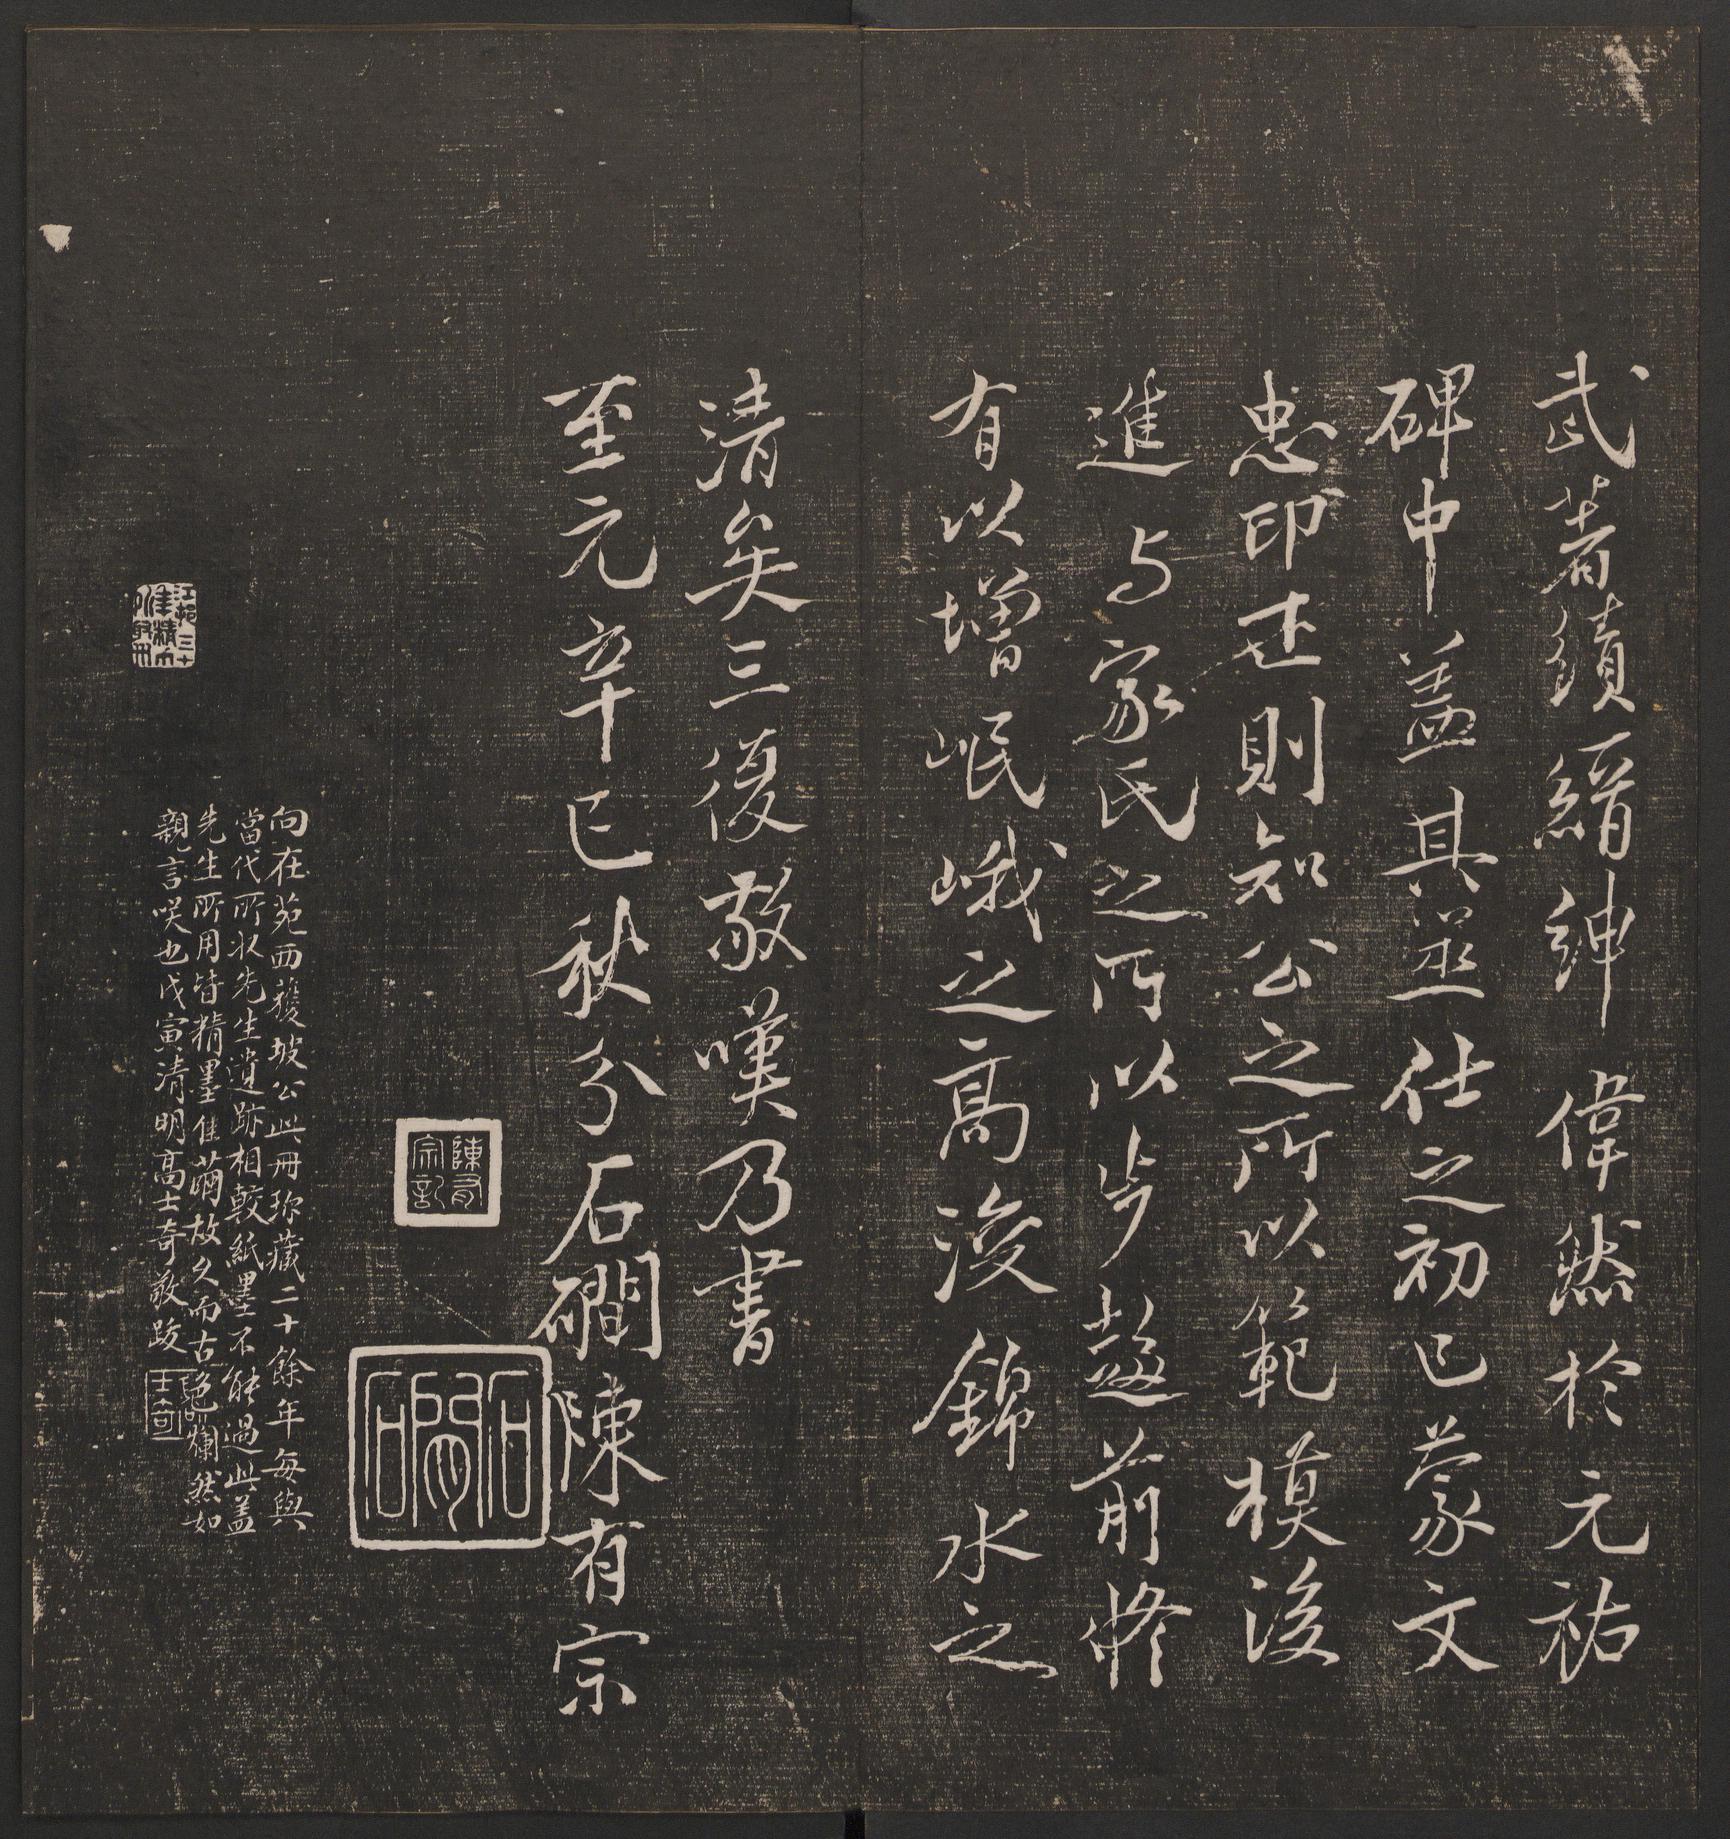 武著績縉紳偉然於元祐
碑中蓋其筮仕之初已蒙文
忠印述則知公之所以範模後
進与家氏之所以步趨前脩
有以增岷峨之高浚錦水之
清矣三復敬嘆乃書
至元辛巳秋分石磵陳有宗
陳有宗記
石磵
向在苑西獲坡公此冊珎藏二十餘年每與
當代所收先生遺跡相較紙墨不能過此蓋
先生所用皆精墨佳繭故久而古色爛然如
親言咲也戊寅清明高士奇敬跋
士奇